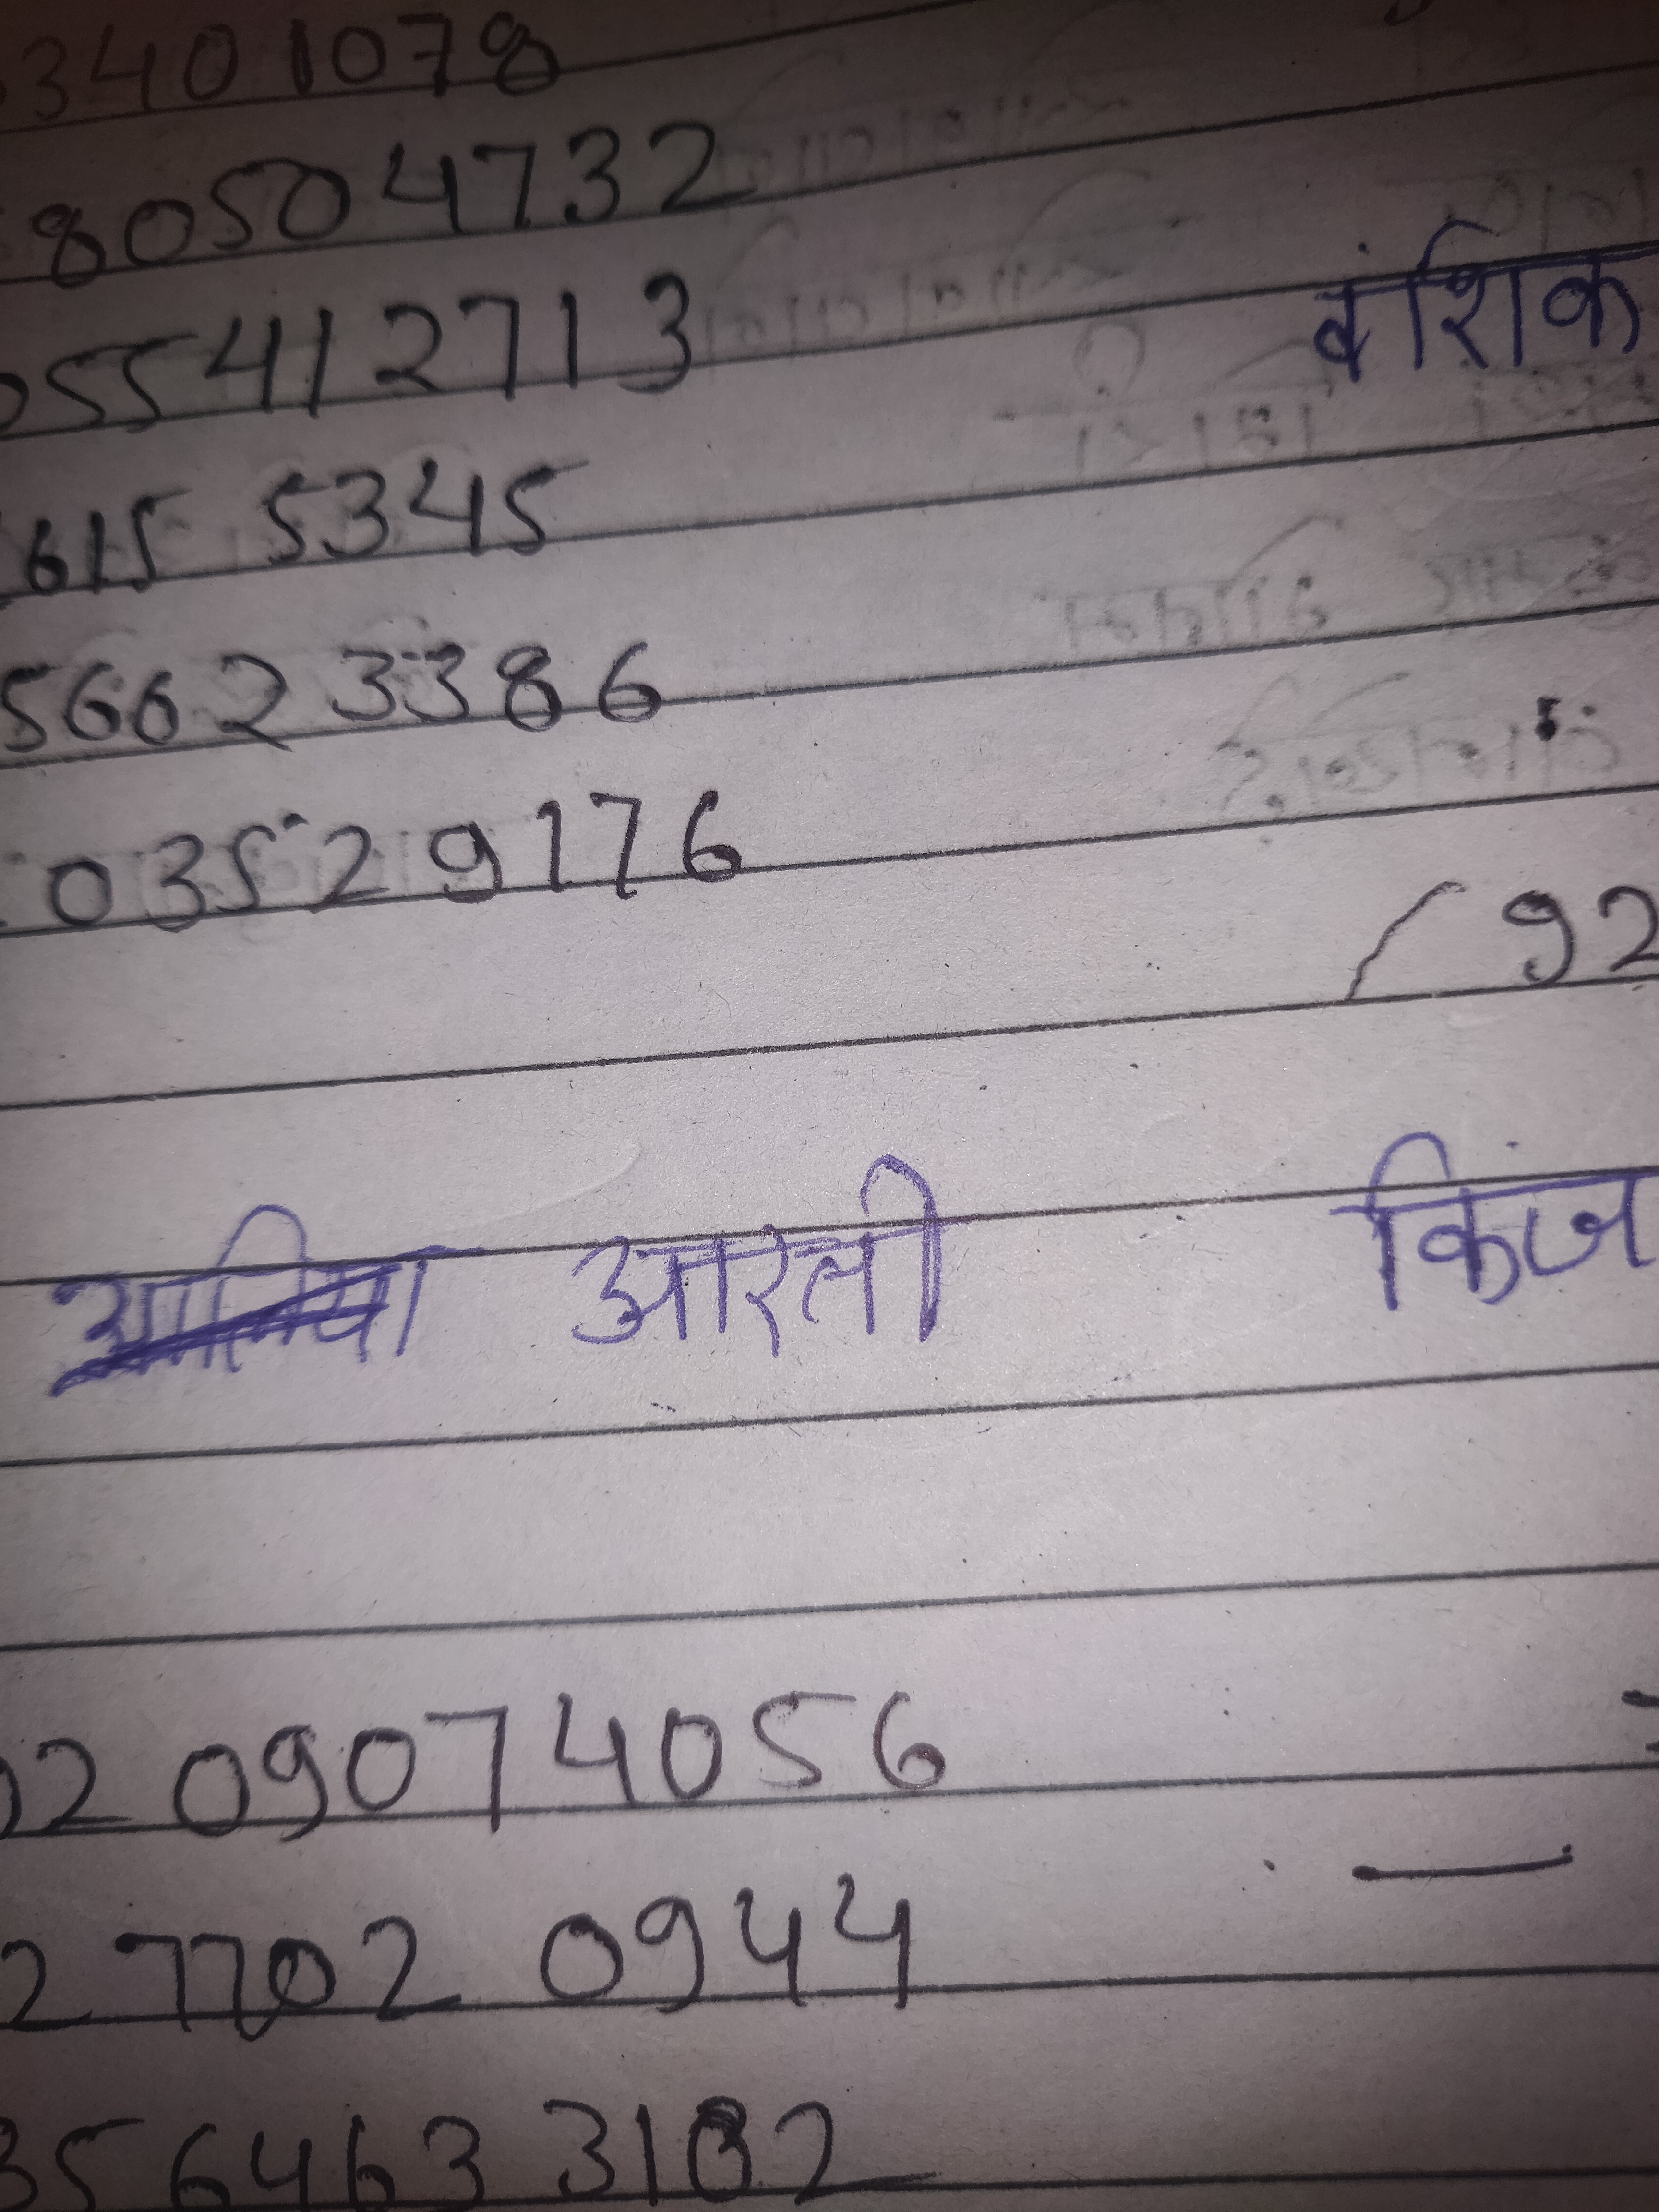 3401078
80504732
55412713
वंशिक
615 5345
5662 3386
03529176
92
आरती किंज
2 09074056
2 7702 0944
56463 3102